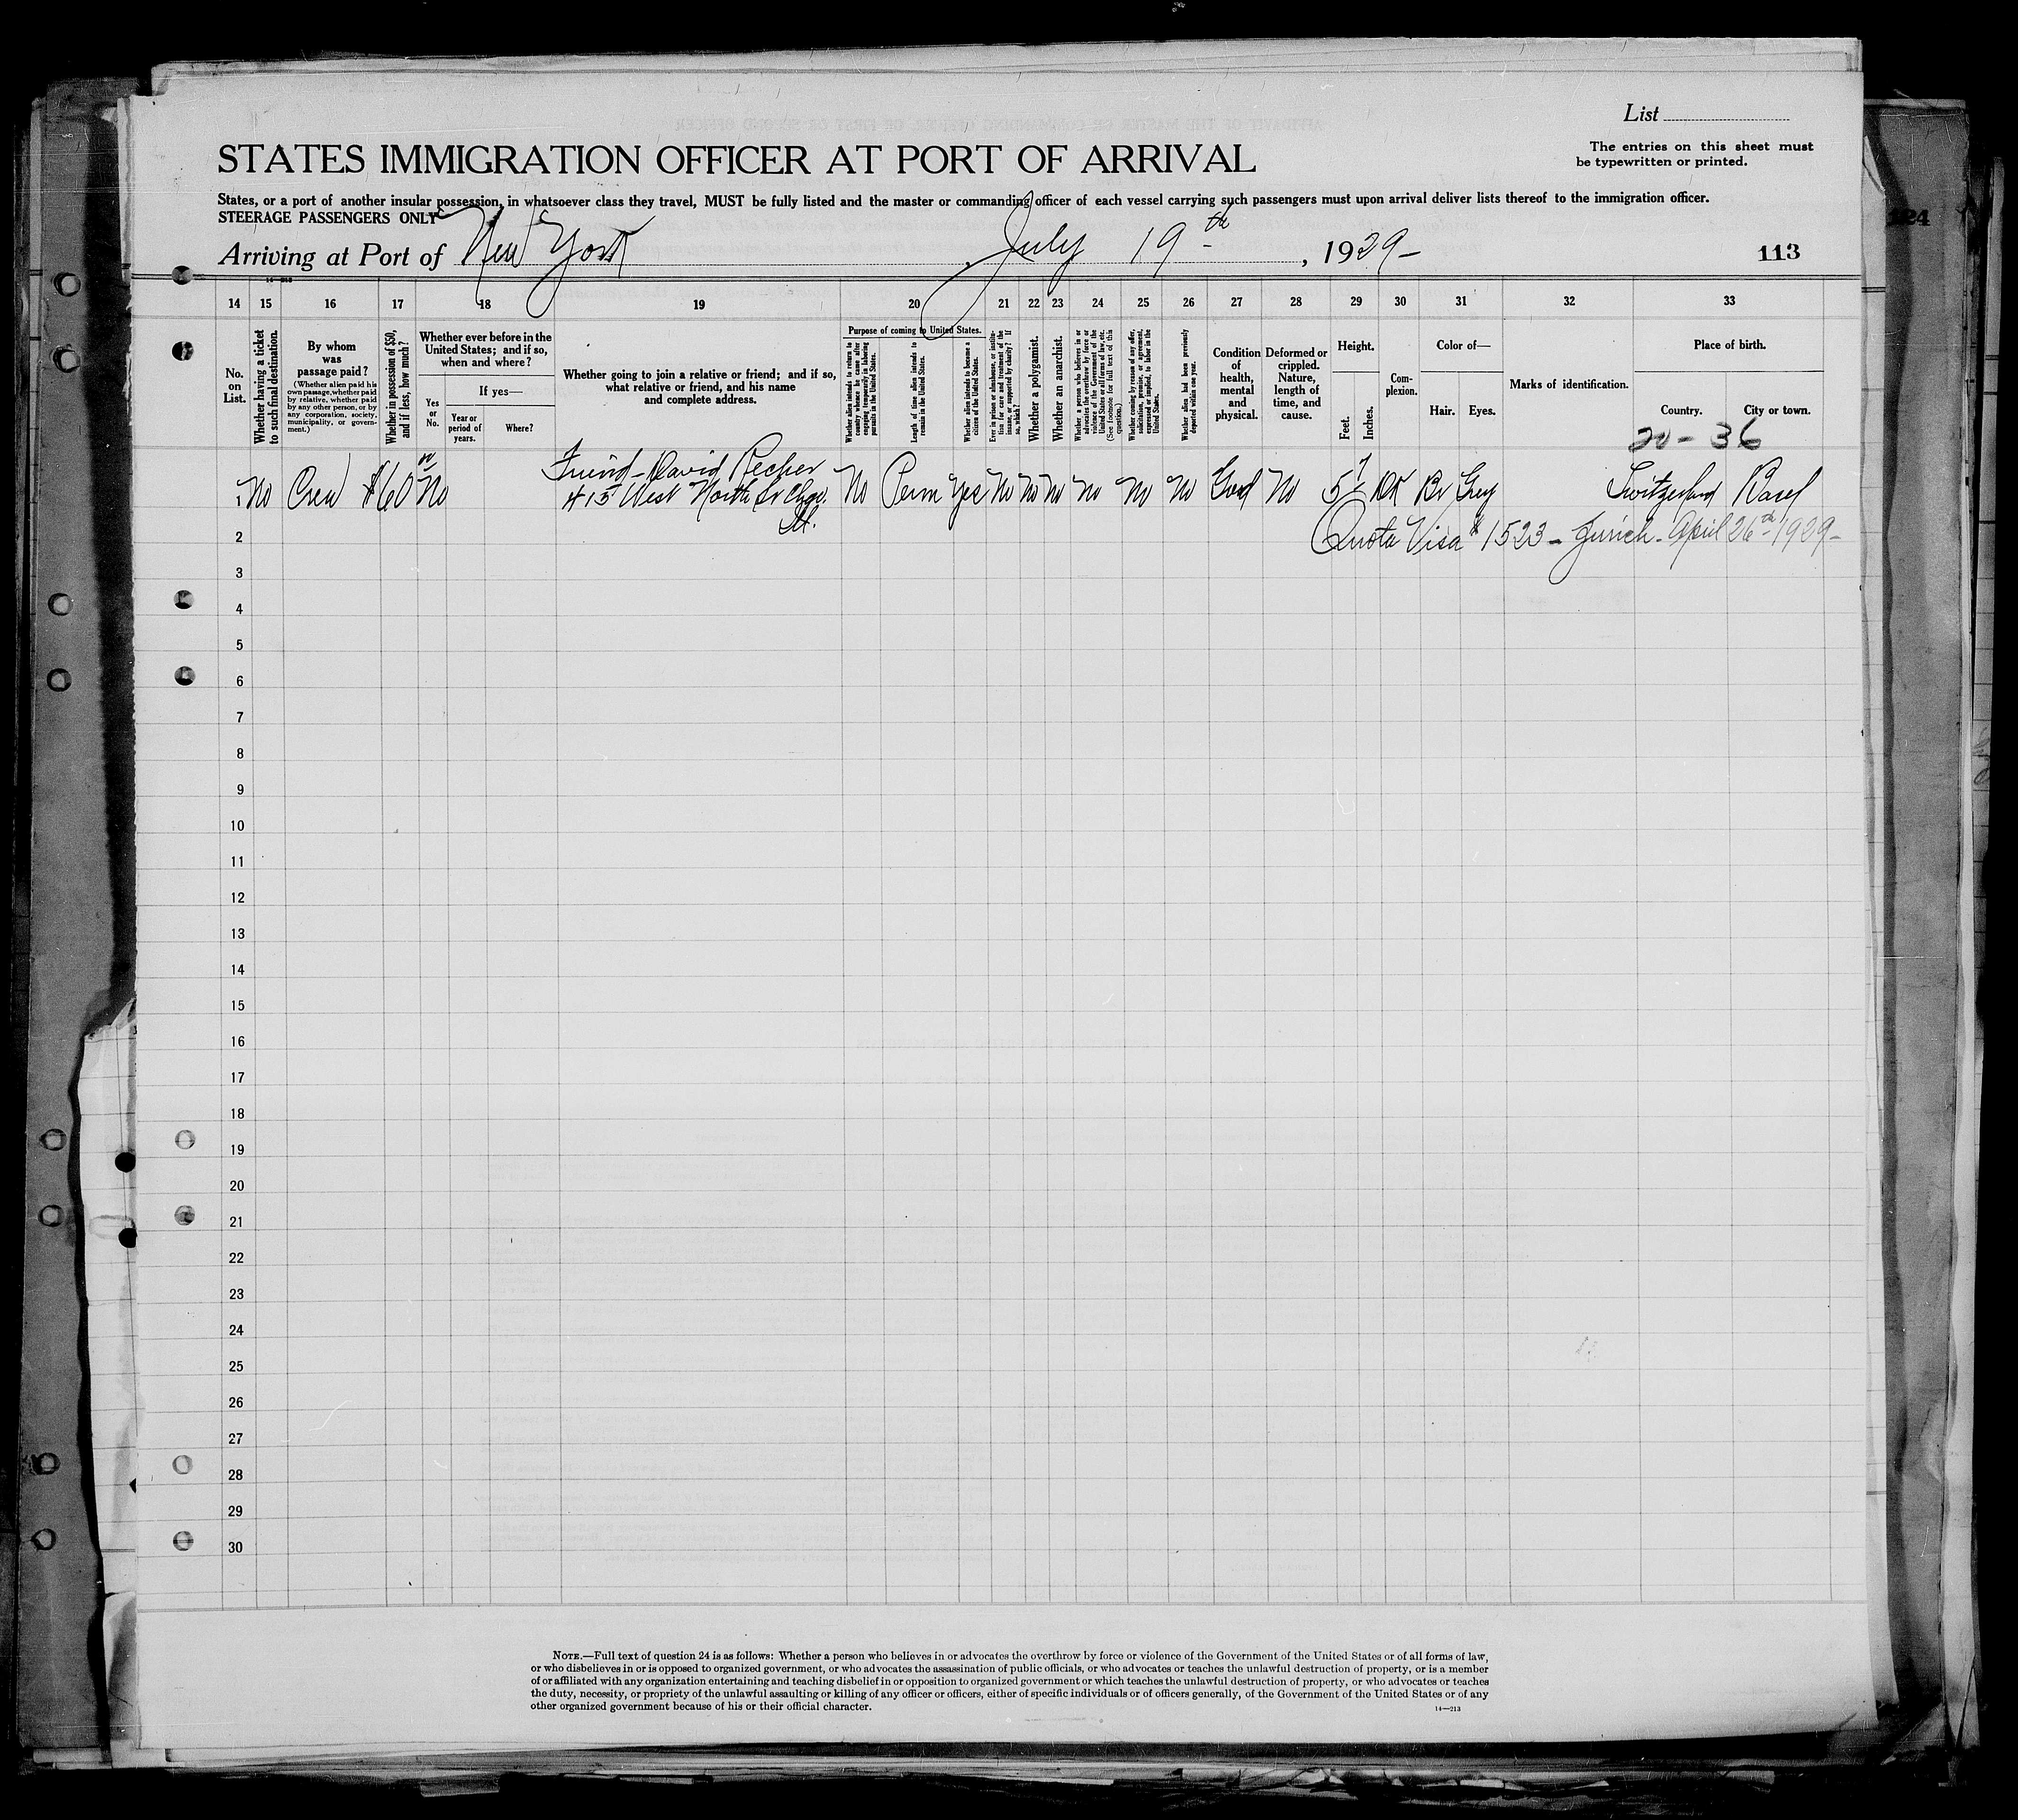 List
The entries on this sheet must
be typewritten or printed.
STATES IMMIGRATION OFFICER AT PORT OF ARRIVAL
States, or a port of another insular possession, in whatsoever class they travel, MUST be fully listed and the master or commanding officer of each vessel carrying such passengers must upon arrival deliver lists thereof to the immigration officer.
STEERAGE PASSENGERS ONLY
Arriving at Port of New York, July 19th, 1929-
113
124
14 15 16 17 18 19 20 21 22 23 24 25 26 27 28 29 30 31 32 33
No. on List.
Whether having a ticket to such final destination.
By whom was passage paid?
(Whether alien paid his own passage, whether paid by relative, whether paid by any other person, or by any corporation, society, municipality, or government.)
Whether in possession of $50, and if less, how much?
Whether ever before in the United States; and if so, when and where?
If yes—
Yes or No.
Year or period of years.
Where?
Whether going to join a relative or friend; and if so, what relative or friend, and his name and complete address.
Purpose of coming to United States.
Whether alien intends to return to country whence he came after engaging temporarily in laboring pursuits in the United States.
Length of time alien intends to remain in the United States.
Whether alien intends to become a citizen of the United States.
Ever in prison or almshouse, or institution for care and treatment of the insane, or supported by charity? If so, which?
Whether a polygamist.
Whether an anarchist.
Whether a person who believes in or advocates the overthrow by force or violence of the Government of the United States or all forms of law, etc. (See footnote for full text of this question.)
Whether coming by reason of any offer, solicitation, promise, or agreement, expressed or implied, to labor in the United States.
Whether alien had been previously deported within one year.
Condition of health, mental and physical.
Deformed or crippled. Nature, length of time, and cause.
Height.
Feet.
Inches.
Complexion.
Color of—
Hair.
Eyes.
Marks of identification.
Place of birth.
Country.
City or town.
20-36
Friend - David Recher
1 No Crew $60 No 415 West North Av Chgo. No Perm Yes No No No No No No Good No 5 7 DK Br Grey Switzerland Basel
Ill.
2 Quota Visa # 1523 - Zurich - April 26th 1929-
3
4
5
6
7
8
9
10
11
12
13
14
15
16
17
18
19
20
21
22
23
24
25
26
27
28
29
30
NOTE.—Full text of question 24 is as follows: Whether a person who believes in or advocates the overthrow by force or violence of the Government of the United States or of all forms of law,
or who disbelieves in or is opposed to organized government, or who advocates the assassination of public officials, or who advocates or teaches the unlawful destruction of property, or is a member
of or affiliated with any organization entertaining and teaching disbelief in or opposition to organized government or which teaches the unlawful destruction of property, or who advocates or teaches
the duty, necessity, or propriety of the unlawful assaulting or killing of any officer or officers, either of specific individuals or of officers generally, of the Government of the United States or of any
other organized government because of his or their official character.
14—213